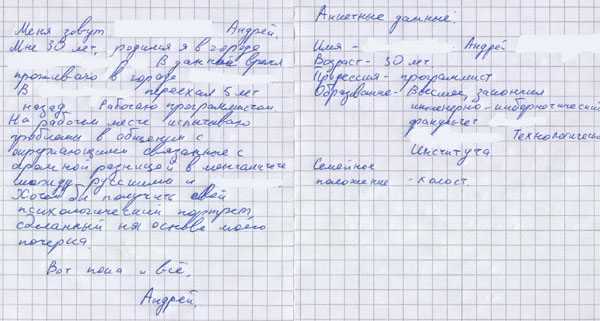 Меня зовут Андрей.
Мне 30 лет, родился я в городе
В данное время
проживаю в городе
В переехал 5 лет
назад. Работаю программистом
На рабочем месте испытываю
проблемы в общении с
окружающими связанные с
огромной разницей в менталитете
между русскими и
Хотел бы получить свой
психологический портрет,
сделанный на основе моего
почерка.
Вот пока и всё.
Андрей.
Анкетные данные:
Имя - Андрей
Возраст - 30 лет
Профессия - программист
Образование - Высшее, закончил
инженерно-кибернетический
факультет
Технологическ
Института
Семейное
положение - холост.